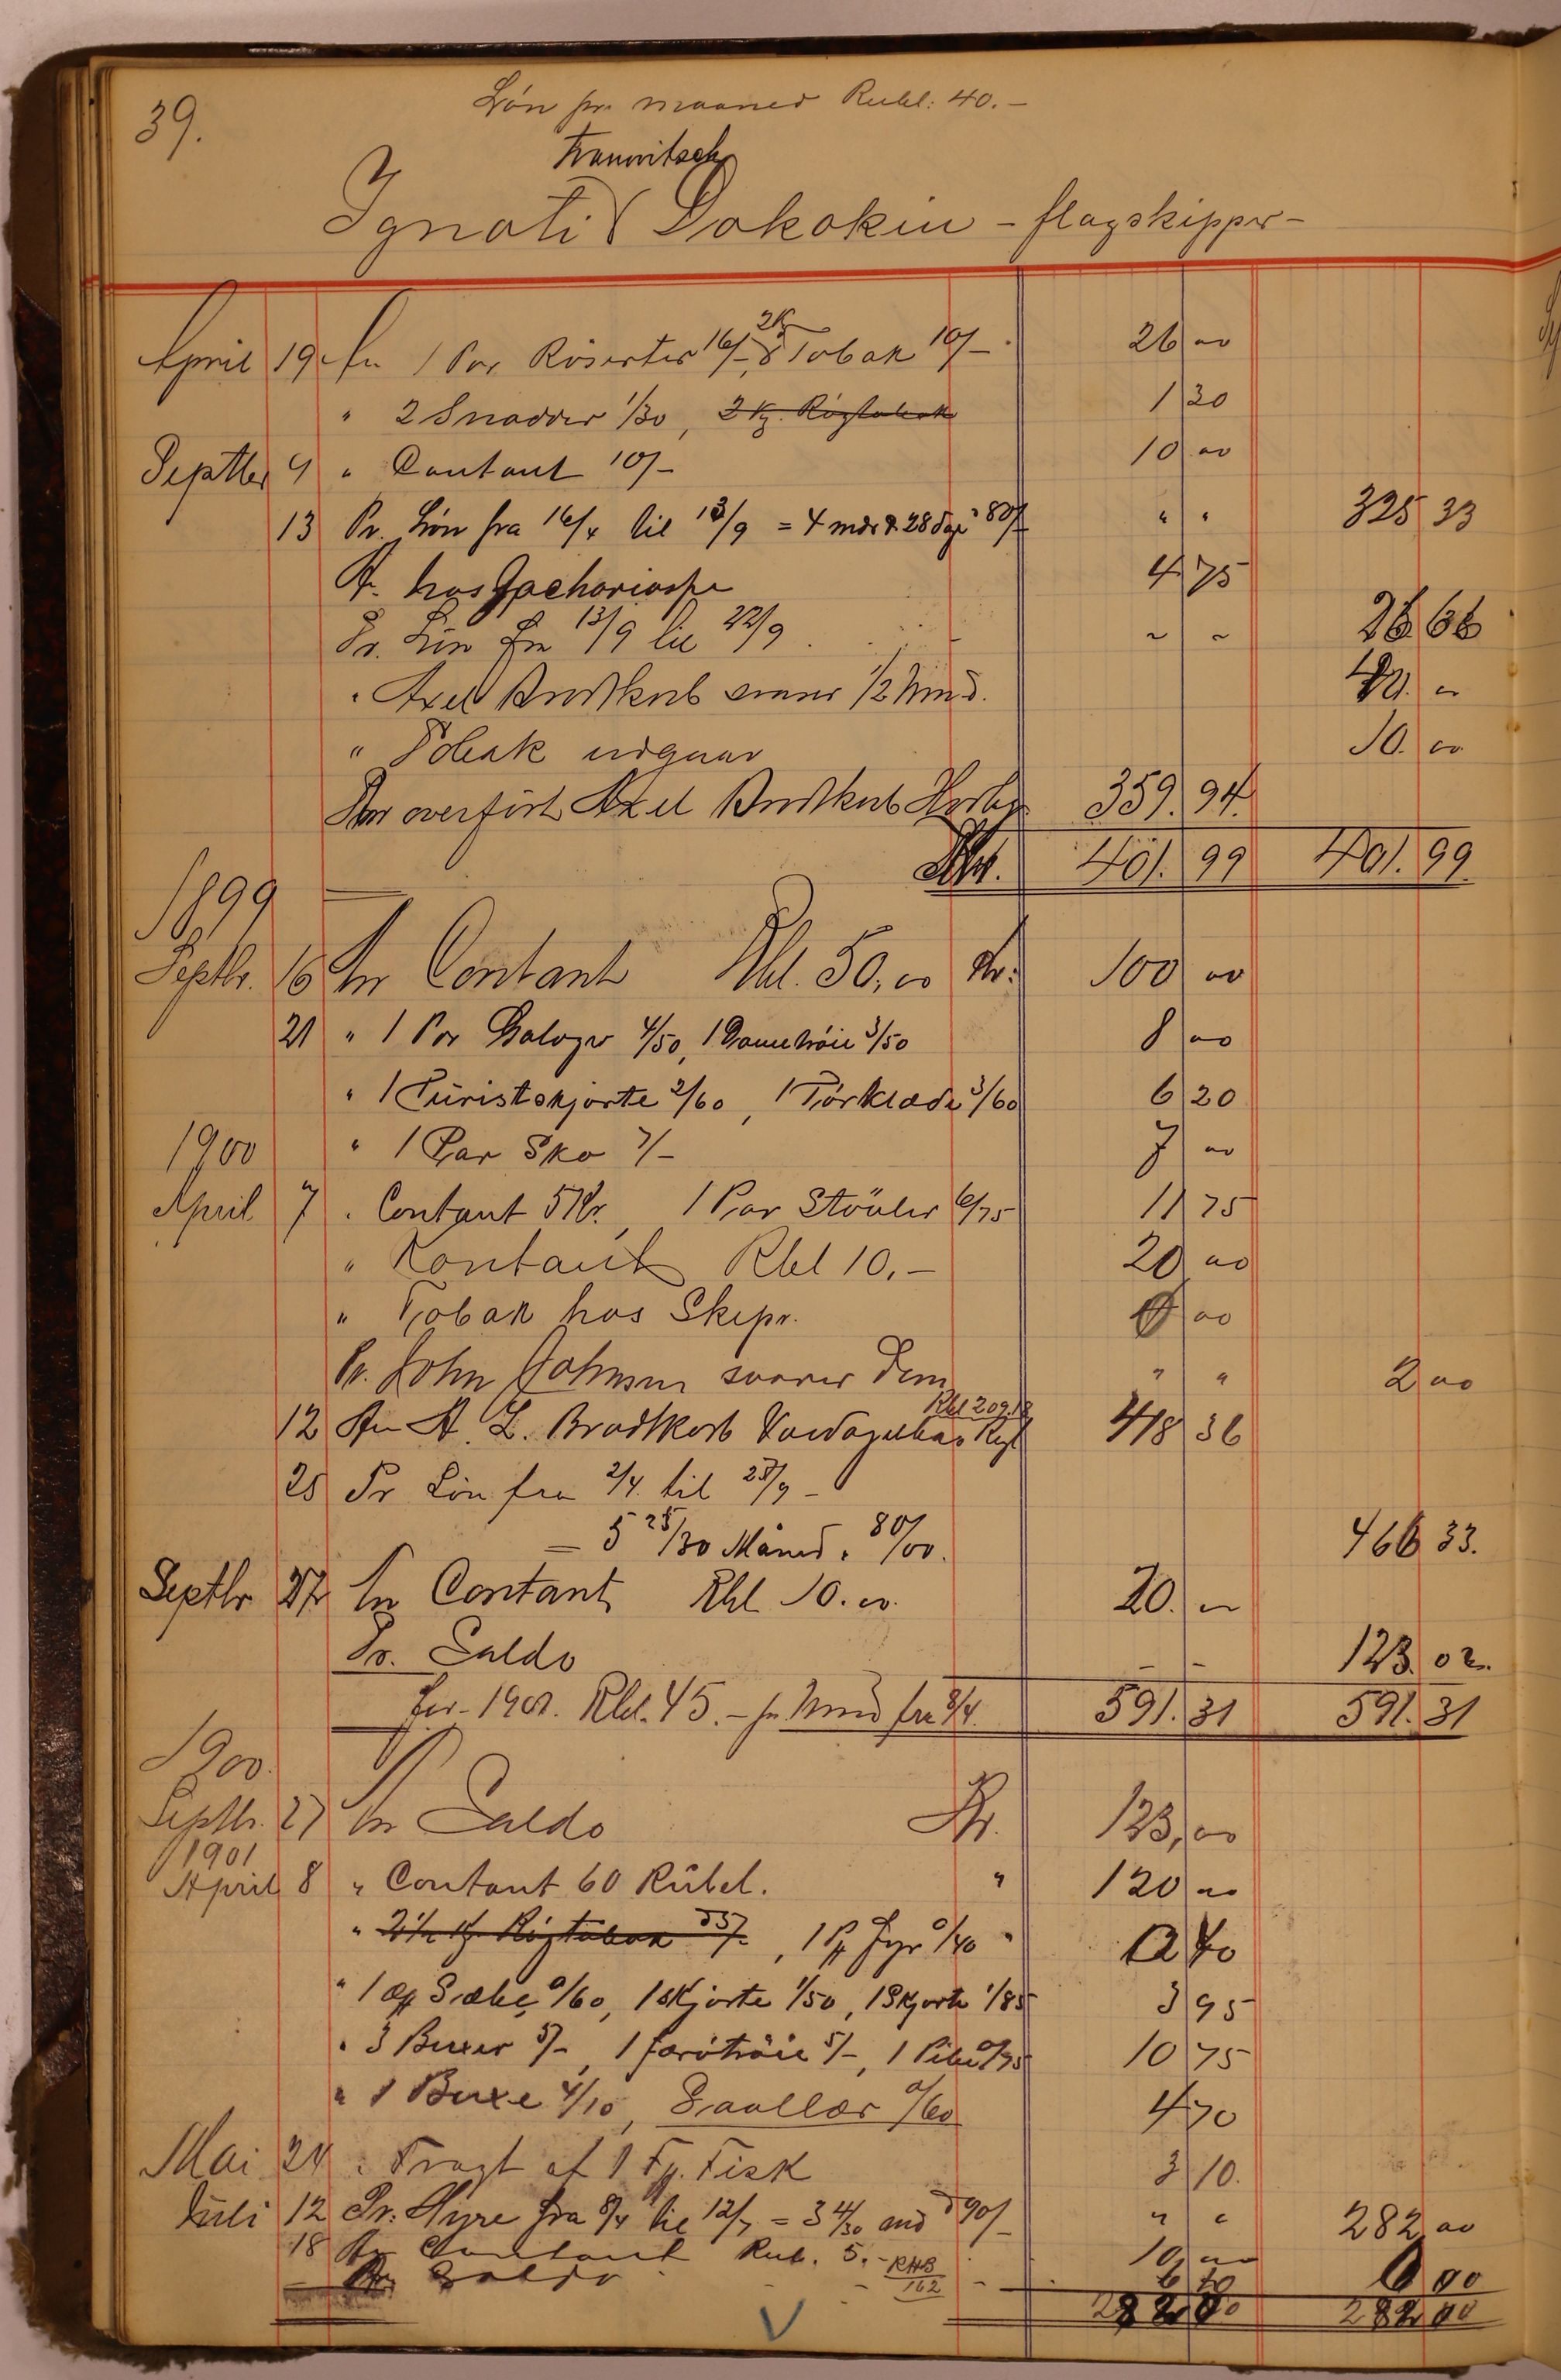 39.
Lön pr. maaned Rubl: 40.–
Ivanovitsch
Ignati Sokokin – flagskipper –
April 19 An 1 Par Röserter 16/–, 2 Kg Tobak 10/– 26 00
" 2 Snadder 1/30, 2 Kg. Rögtobak 1 30
Septber 4 " Contant 10/– 10 00
13 Pr. Lön fra 16/4 til 13/9 = 4 mdr & 28 dage 80/– " " 325 33
An hos Zachariasen 4 75
Pr. Lön fra 13/9 til 22/9 ~ ~ 26 66
" Axel Brodtkorb svarer 1/2 Mnd. 40. 00
" Tobak udgaar 10. 00
An overfört Axel Brodtkorb 359. 94.
Kr. 401. 99 401. 99
1899
Septbr. 16 An Contant Rbl. 50,00 Kr: 100 00
21 " 1 Par Galoger 4/50, 1 Dametröie 3/50 8 00
" 1 Turistskjorte 2/60, 1 Törklæde 3/60 6 20
1900 " 1 Par Sko 7/– 7 00
April 7 " Contant 5 Kr., 1 Par Stövler 6/75 11 75
" Kontant Rbl 10,– 20 00
" Tobak hos Skipr. 00
Pr. John Johnsen svarer Dem " " 2 00
Rbl 209.18
12 An A. L. Brodtkorb 418 36
25 Pr Lön fra 2/4 til 27/9 –
= 5 25/30 Måned " 80/00. 466 33.
Septbr 27 An Contant Rbl 10.00. 20. 00
Pr. Saldo – – 123. 02.
for 1901. Rbl. 45.– pr. Mnd fra 8/4. 591. 31 591. 31
1900.
Septbr. 27 An Saldo Kr. 123,00
1901
April 8 " Contant 60 Rubel. " 120 00
" 2 1/2 Kg Rögtobak, 1 Pk Fyr 0/40 " 0 40
" 1 Sæbe 0/60, 1 Skjorte 1/50, 1 Skjorte 1/85 3 95
" 3 Buxer 5/–, 1 færötröie 5/–, 1 Pibe 0/75 10 75
" 1 Buxe 4/10, Saallær 0/60 4 70
Mai 24 " Fragt af 1 Fg. Fisk 3 10.
Juli 12 Pr. Hyre fra 8/4 til 12/7 = 3 4/30 md à 90/– " " 282 00
18 An Contant Rub. 5.– 10 00
Saldo RHB 162
282 00 282 00